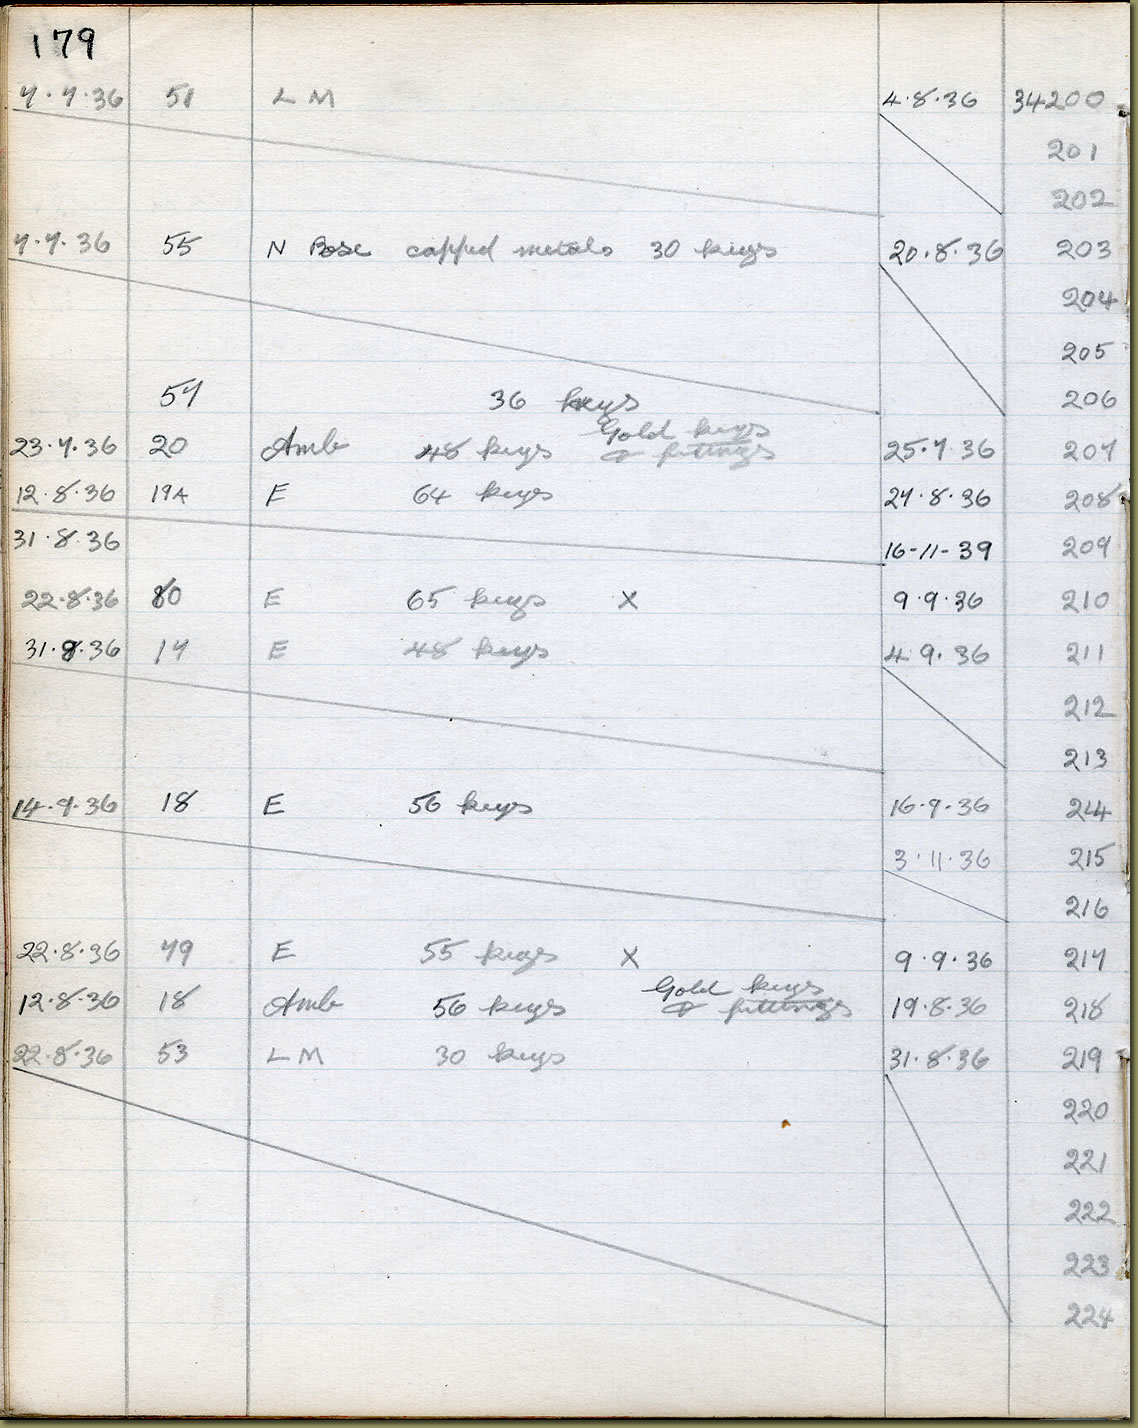 179
7.7.36 51 L M 4.8.36 34200
201
202
7.7.36 55 N Bose capped metals 30 keys 20.8.36 203
204
205
57 36 keys 206
Gold keys
23.7.36 20 Amb 48 keys & fittings 25.7.36 207
12.8.36 19A E 64 keys 27.8.36 208
31.8.36 16-11-39 209
22.8.36 80 E 65 keys X 9.9.36 210
31.8.36 17 E 48 keys 4.9.36 211
212
213
14.9.36 18 E 56 keys 16.9.36 214
3.11.36 215
216
22.8.36 79 E 55 keys X 9.9.36 217
Gold keys
12.8.36 18 Amb 56 keys & fittings 19.8.36 218
22.8.36 53 L M 30 keys 31.8.36 219
220
221
222
223
224